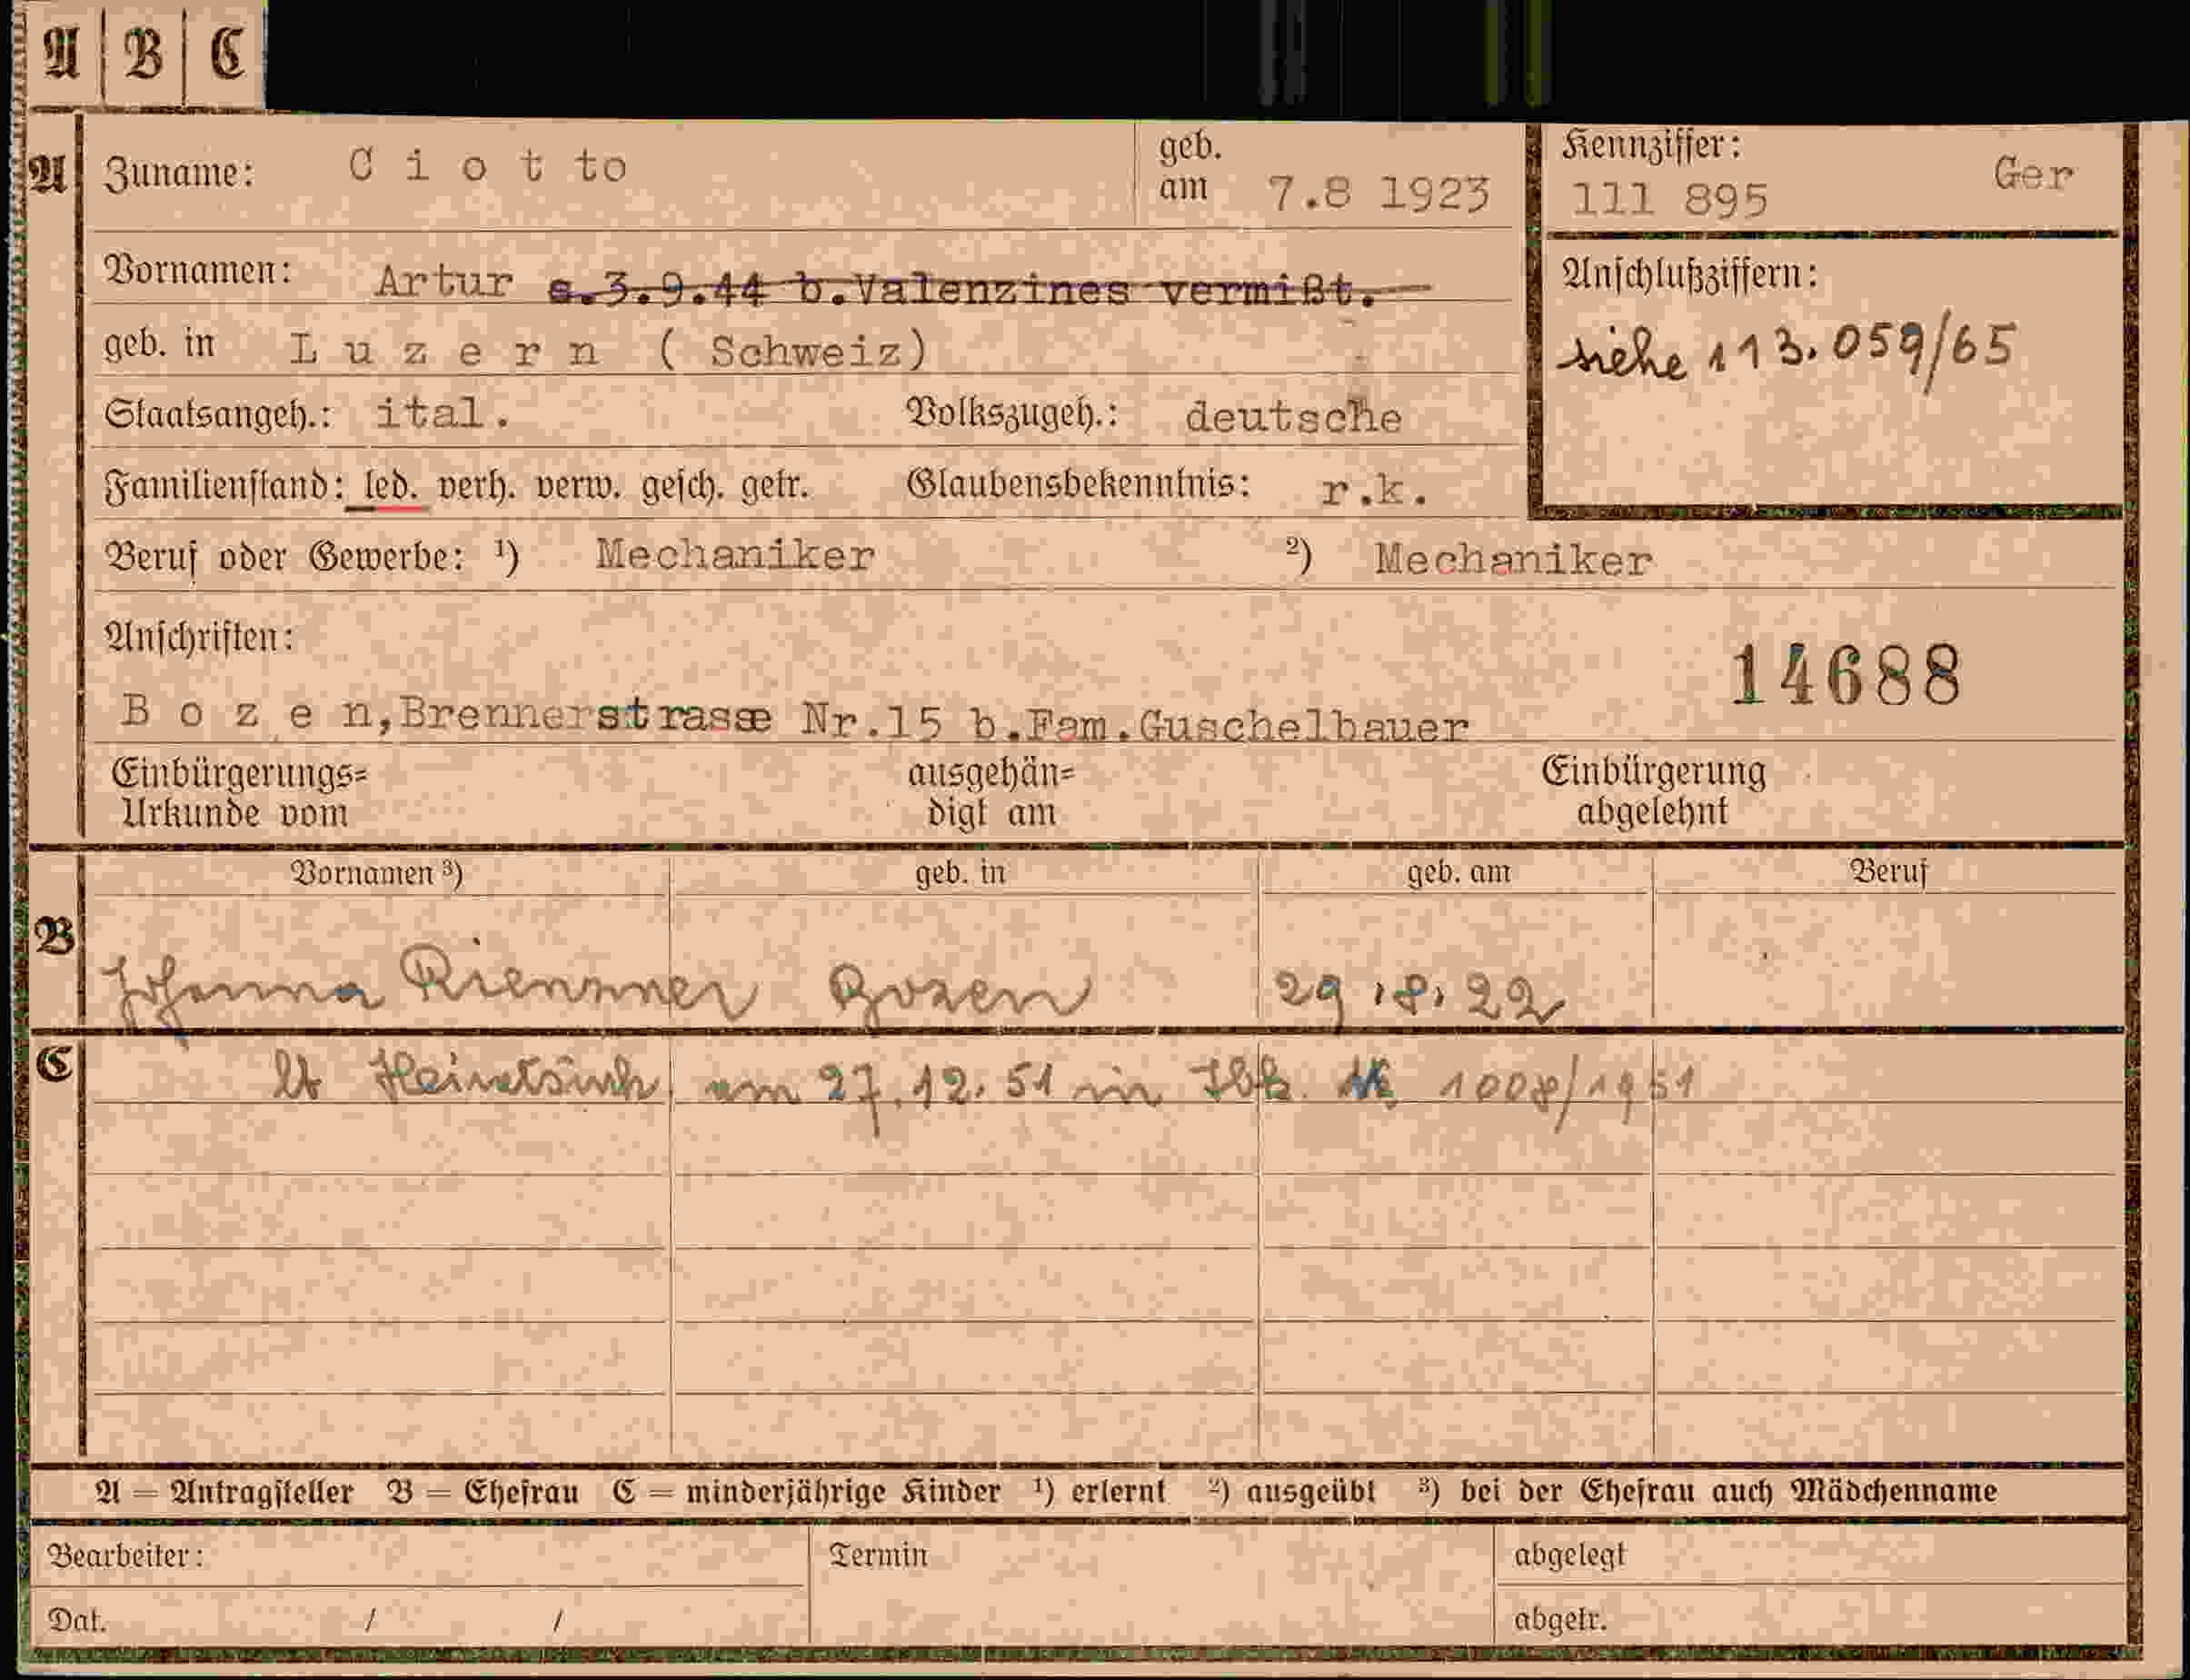 A B C
A Zuname: Ciotto geb. am 7.8 1923 Kennziffer: 111 895 Ger
Vornamen: Artur s.3.9.44 b.Valenzines vermißt. Anschlußziffern:
siehe 113.059/65
geb. in Luzern ( Schweiz)
Staatsangeh.: ital. Volkszugeh.: deutsche
Familienstand: led. verh. verw. gesch. getr. Glaubensbekenntnis: r.k.
Beruf oder Gewerbe: ¹) Mechaniker ²) Mechaniker
Anschriften:
14688
Bozen,Brennerstrasse Nr.15 b.Fam.Guschelbauer
Einbürgerungs= ausgehän= Einbürgerung
Urkunde vom digt am abgelehnt
Vornamen ³) geb. in geb. am Beruf
B Johanna Bozen 29.8.22
C am 27.12.51 in Ibk. 1008/1951
A = Antragsteller B = Ehefrau C = minderjährige Kinder ¹) erlernt ²) ausgeübt ³) bei der Ehefrau auch Mädchenname
Bearbeiter: Termin abgelegt
Dat. / / abgetr.